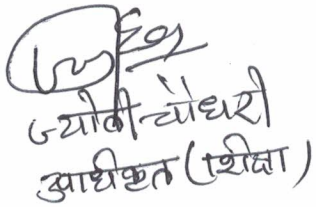 ज्योती चौधरी
अधीकृत (शिक्षा)